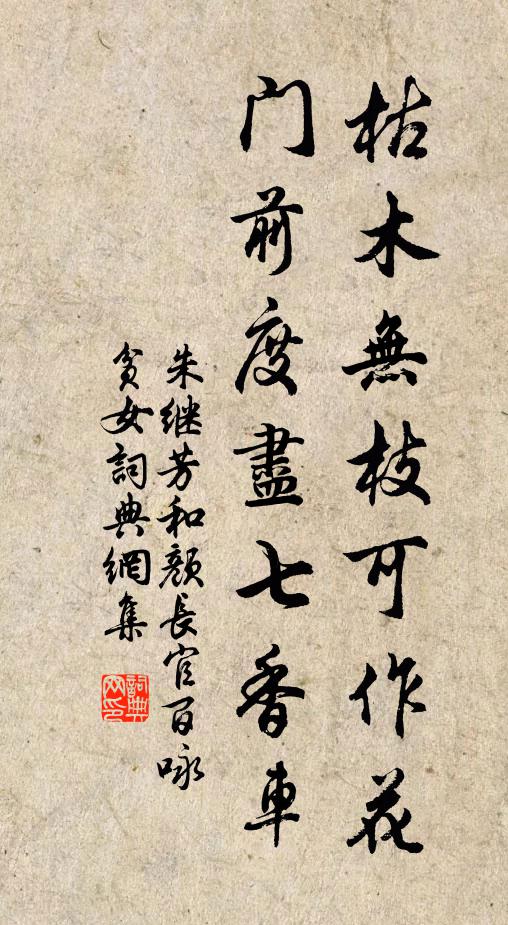 枯木無枝可作花
门前度盡七香車
朱继芳和顔長官百咏
貧女詞典網集
詞典
网印